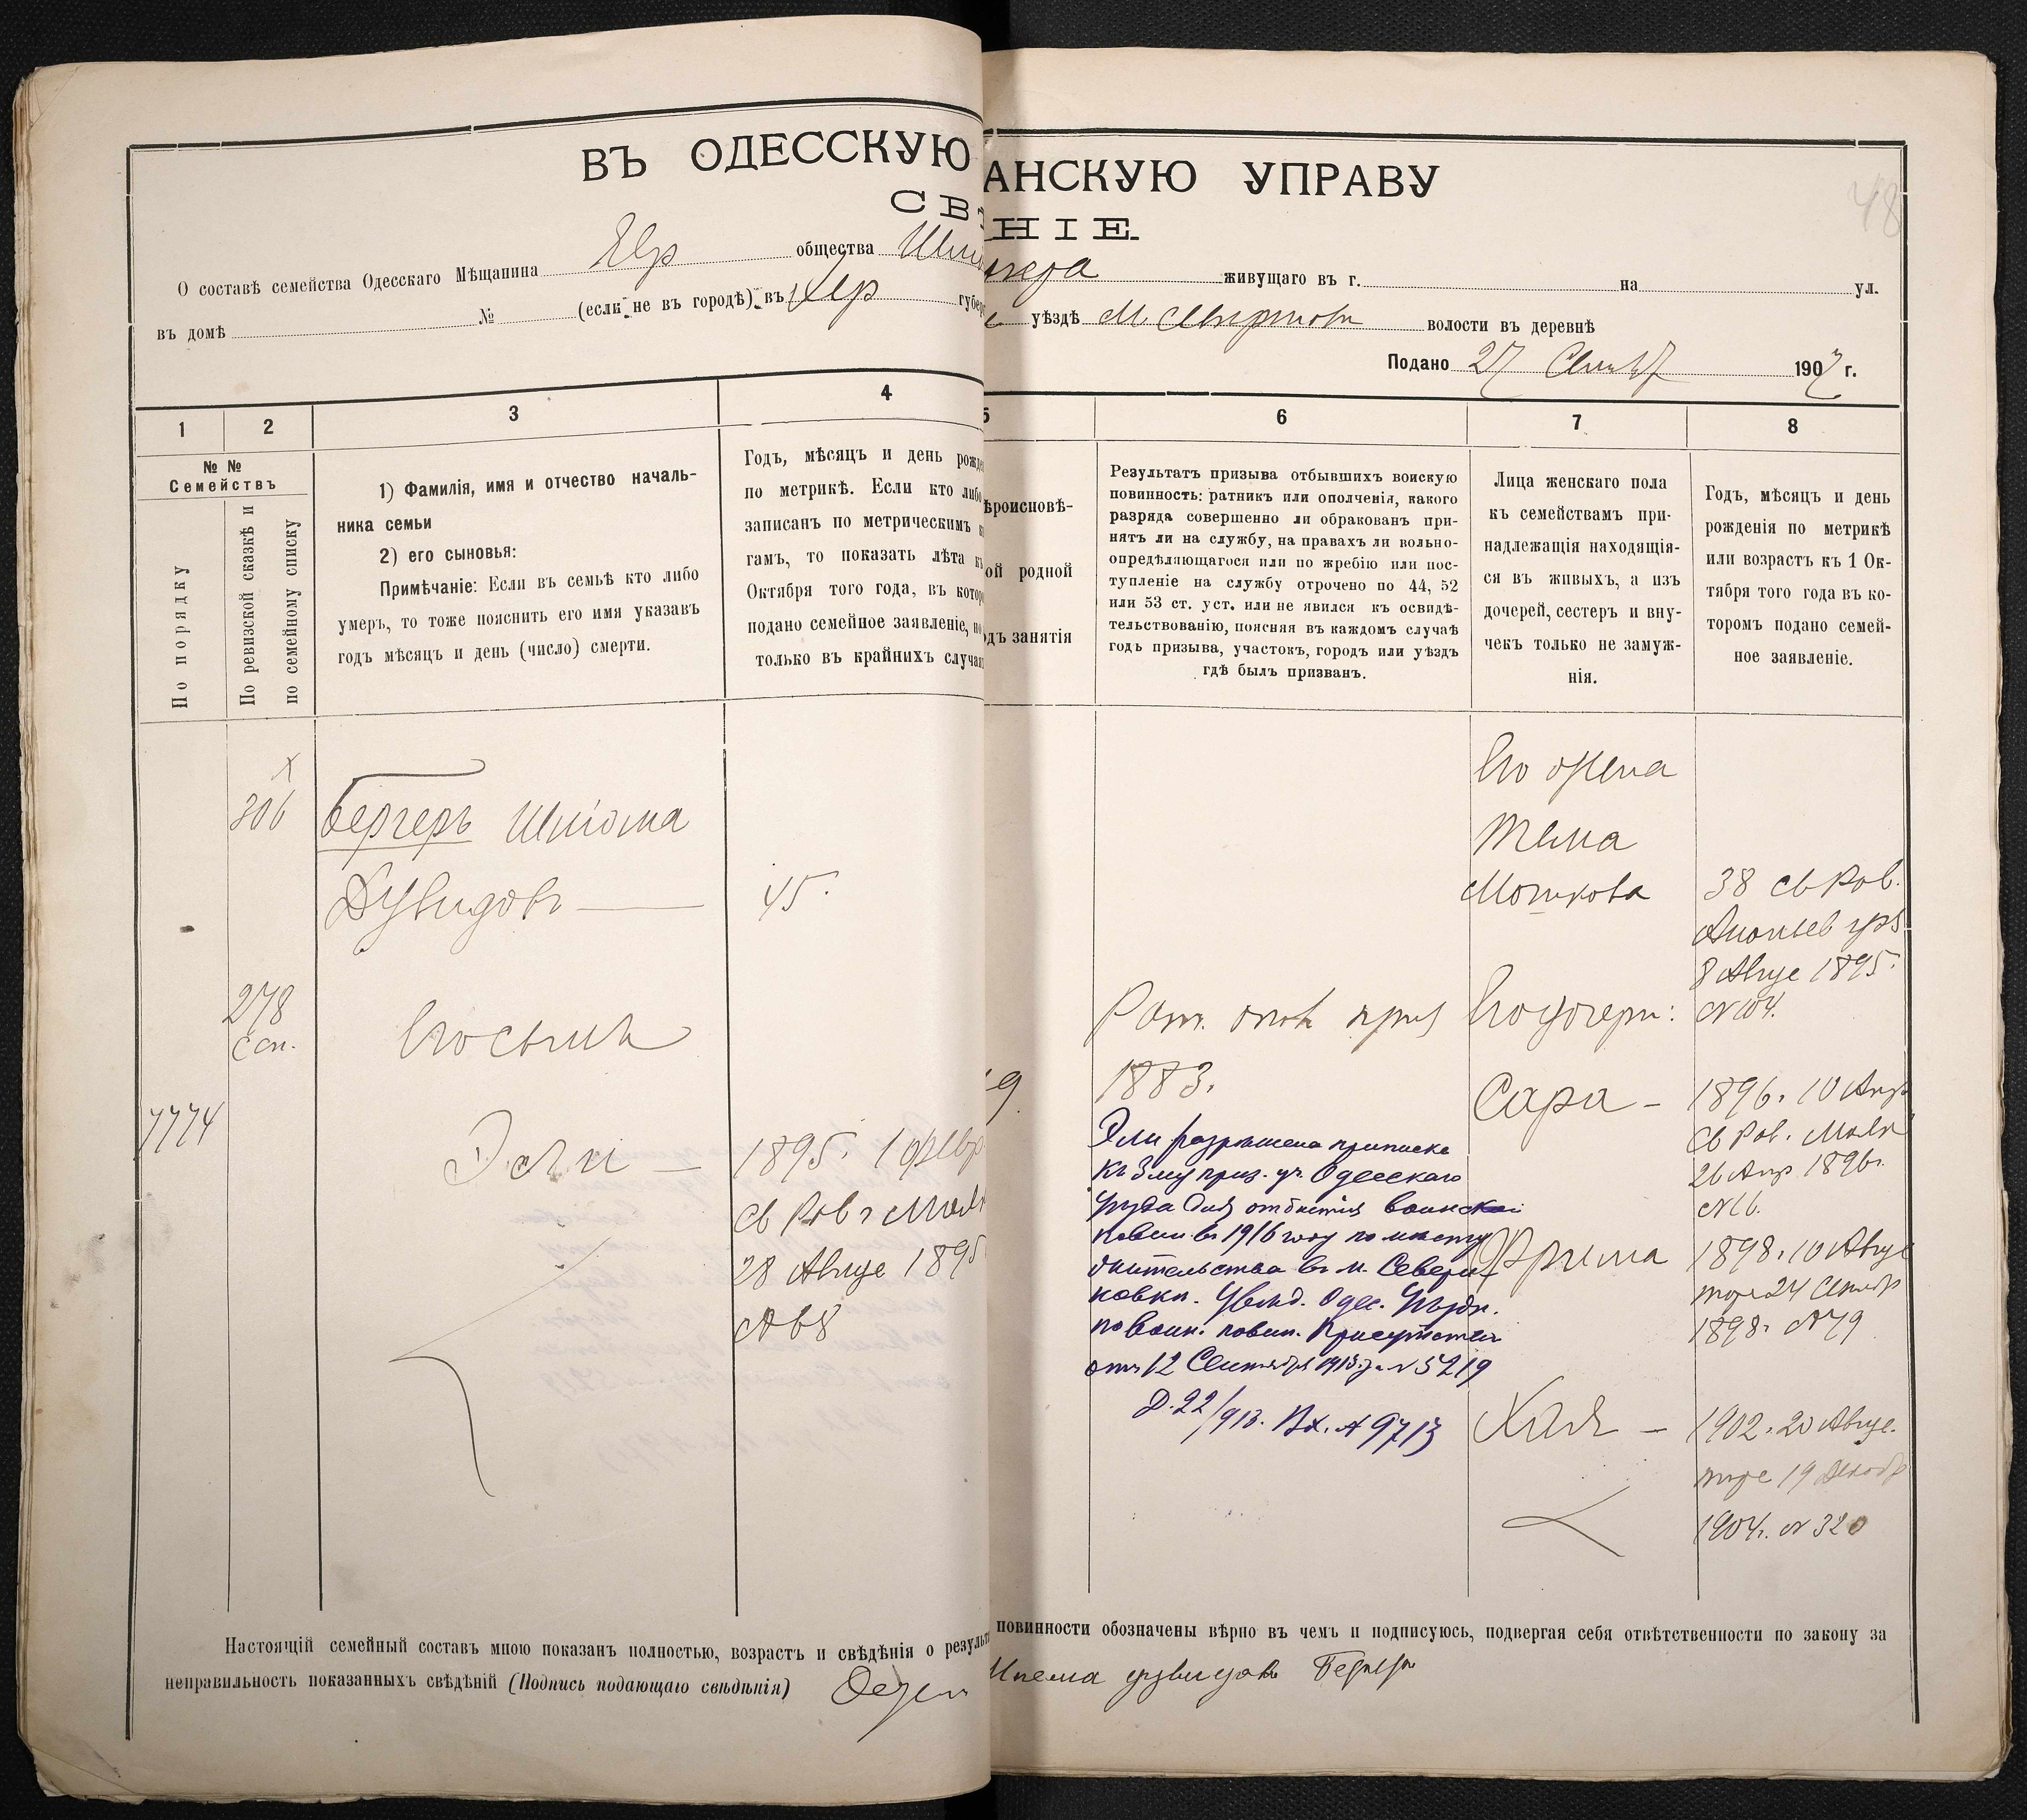 ВЪ ОДЕССКУЮ
АНСКУЮ УПРАВУ
СВѢ
НІЕ.
48
О составѣ семейства Одесскаго Мѣщанина Евр общества Шлі
гера живущаго въ г. на ул.
въ домѣ № (если не въ городѣ) въ Хер губе
уѣздѣ М. волости въ деревнѣ
Подано 27 Сентб 1907 г.
1 2 3 4
5 6 7 8
№ №
Семействъ
По порядку
По ревизской сказкѣ и
по семейному списку
1) Фамилія, имя и отчество началь-
ника семьи
2) его сыновья:
Примѣчаніе: Если въ семьѣ кто либо
умеръ, то тоже пояснить его имя указавъ
годъ мѣсяцъ и день (число) смерти.
Годъ, мѣсяцъ и день рожде
по метрикѣ. Если кто либо
записанъ по метрическимъ к
гамъ, то показать лѣта къ
Октября того года, въ кото
подано семейное заявленіе, но
только въ крайнихъ случа
ѣроисповѣ-
ой родной
одъ занятія
Результатъ призыва отбывшихъ воискую
повинность: ратникъ или ополченія, какого
разряда совершенно ли обракованъ при-
нятъ ли на службу, на правахъ ли вольно-
опредѣляющагося или по жребію или пос-
тупленіе на службу отрочено по 44, 52
или 53 ст. уст. или не явился къ освидѣ-
тельствованію, поясняя въ каждомъ случаѣ
годъ призыва, участокъ, городъ или уѣздъ
гдѣ былъ призванъ.
Лица женскаго пола
къ семействамъ при-
надлежащія находящія-
ся въ живыхъ, а изъ
дочерей, сестеръ и вну-
чекъ только не замуж-
нія.
Годъ, мѣсяцъ и день
рожденія по метрикѣ
или возрастъ къ 1 Ок-
тября того года въ ко-
торомъ подано семей-
ное заявленіе.
306
Бергеръ Шліома
Дувидовъ
45.
278
с сп.
Его сынъ
7774
Эли
1895. 1 февр
св Рав г Маяк
28 Авгус 1895
№ 68
9.
Рат. опол приз
1883.
Эли разрѣшена приписка
къ 3 му приз. уч. Одесскаго
уѣзда для отбытія воинской
повин. въ 1916 году по мѣсту
жительства въ м. Севери-
новкѣ. Увѣд. Одес. Уѣздн.
по воин. повин. Присутствія
отъ 12 Сентября 1913 г. за № 5219
Д. 22/913. Вх. № 9713
Его жена
Тема
Мошкова
38 св Рав.
Ананьев
8 Авгус 1895.
№ 104.
Его дочери:
Сара
1896. 10 Апр
св Рав. Маяк
26 Апр 1896 г.
№ 16.
Фрима
1898. 10 Авгус
того 24 Сентбр
1898. № 79
Хая
1902. 20 Авгус.
тоже 19 Декабр
1904 г. № 320
Настоящій семейный составъ мною показанъ полностью, возрастъ и свѣдѣнія о резуль
повинности обозначены вѣрно въ чемъ и подписуюсь, подвергая себя отвѣтственности по закону за
неправильность показанныхъ свѣдѣній (Подпись подающаго свѣдѣнія)
Дувидовъ Бергеръ